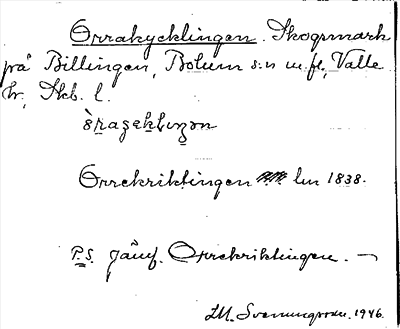 Orrakycklingen. Skogsmark
på Billingen, Bolum s:n m.fl., Valle
hr, Skb. l.
Orrekriklingen lm 1838.
P.S. Jämf. Orrekriklingen. —
M. Svenungsson. 1946.